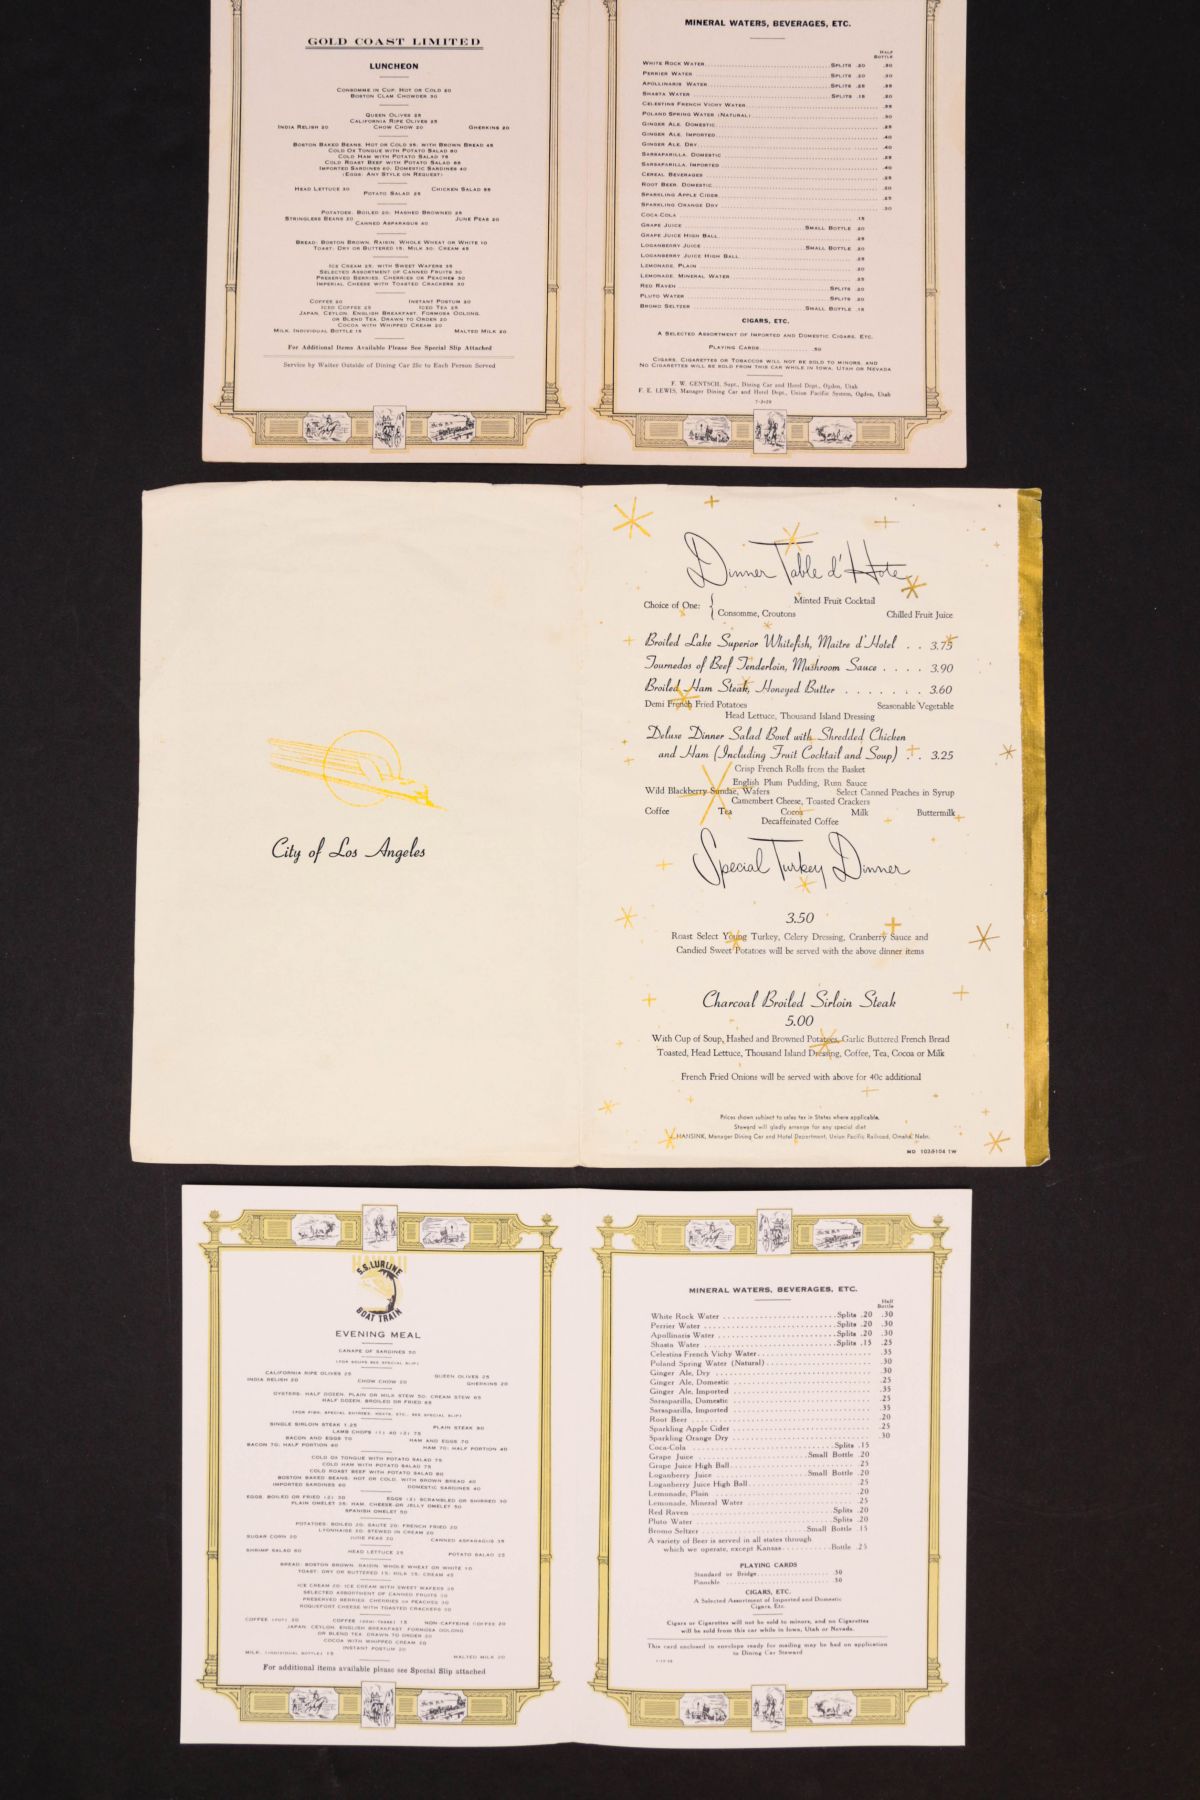 GOLD COAST LIMITED
LUNCHEON
CONSOMME IN CUP, HOT OR COLD 20
BOSTON CLAM CHOWDER 30
QUEEN OLIVES 25
CALIFORNIA RIPE OLIVES 25
INDIA RELISH 20 CHOW CHOW 20 GHERKINS 20
BOSTON BAKED BEANS, HOT OR COLD 35; WITH BROWN BREAD 45
COLD OX TONGUE WITH POTATO SALAD 80
COLD HAM WITH POTATO SALAD 75
COLD ROAST BEEF WITH POTATO SALAD 85
IMPORTED SARDINES 60; DOMESTIC SARDINES 40
(EGGS: ANY STYLE ON REQUEST)
HEAD LETTUCE 30 POTATO SALAD 25 CHICKEN SALAD 85
POTATOES: BOILED 20; HASHED BROWNED 25
STRINGLESS BEANS 20 JUNE PEAS 20
CANNED ASPARAGUS 40
BREAD: BOSTON BROWN, RAISIN, WHOLE WHEAT OR WHITE 10
TOAST: DRY OR BUTTERED 15; MILK 30; CREAM 45
ICE CREAM 25; WITH SWEET WAFERS 35
SELECTED ASSORTMENT OF CANNED FRUITS 30
PRESERVED BERRIES, CHERRIES OR PEACHES 30
IMPERIAL CHEESE WITH TOASTED CRACKERS 30
COFFEE 20 INSTANT POSTUM 20
ICED COFFEE 25 ICED TEA 25
JAPAN, CEYLON, ENGLISH BREAKFAST, FORMOSA OOLONG,
OR BLEND TEA, DRAWN TO ORDER 20
COCOA WITH WHIPPED CREAM 20
MILK, INDIVIDUAL BOTTLE 15 MALTED MILK 20
For Additional Items Available Please See Special Slip Attached
Service by Waiter Outside of Dining Car 25c to Each Person Served
MINERAL WATERS, BEVERAGES, ETC.
HALF
BOTTLE
WHITE ROCK WATER SPLITS .20 .30
PERRIER WATER SPLITS .20 .30
APOLLINARIS WATER SPLITS .25 .35
SHASTA WATER SPLITS .15 .20
CELESTINS FRENCH VICHY WATER .35
POLAND SPRING WATER (NATURAL) .30
GINGER ALE, DOMESTIC .25
GINGER ALE, IMPORTED .40
GINGER ALE, DRY .40
SARSAPARILLA, DOMESTIC .25
SARSAPARILLA, IMPORTED .40
CEREAL BEVERAGES .25
ROOT BEER, DOMESTIC .20
SPARKLING APPLE CIDER .25
SPARKLING ORANGE DRY .30
COCA-COLA .15
GRAPE JUICE SMALL BOTTLE .20
GRAPE JUICE HIGH BALL .25
LOGANBERRY JUICE SMALL BOTTLE .20
LOGANBERRY JUICE HIGH BALL .25
LEMONADE, PLAIN .20
LEMONADE, MINERAL WATER .25
RED RAVEN SPLITS .20
PLUTO WATER SPLITS .20
BROMO SELTZER SMALL BOTTLE .15
CIGARS, ETC.
A SELECTED ASSORTMENT OF IMPORTED AND DOMESTIC CIGARS, ETC.
PLAYING CARDS .50
CIGARS, CIGARETTES OR TOBACCOS WILL NOT BE SOLD TO MINORS, AND
NO CIGARETTES WILL BE SOLD FROM THIS CAR WHILE IN IOWA, UTAH OR NEVADA
F. W. GENTSCH, Supt., Dining Car and Hotel Dept., Ogden, Utah
F. E. LEWIS, Manager Dining Car and Hotel Dept., Union Pacific System, Ogden, Utah
7-3-29
City of Los Angeles
Dinner Table d' Hote
Minted Fruit Cocktail
Choice of One: { Consomme, Croutons Chilled Fruit Juice
Broiled Lake Superior Whitefish, Maitre d'Hotel . . 3.75
Tournedos of Beef Tenderloin, Mushroom Sauce . . . . 3.90
Broiled Ham Steak, Honeyed Butter . . . . . . . 3.60
Demi French Fried Potatoes Seasonable Vegetable
Head Lettuce, Thousand Island Dressing
Deluxe Dinner Salad Bowl with Shredded Chicken
and Ham (Including Fruit Cocktail and Soup) . . 3.25
Crisp French Rolls from the Basket
English Plum Pudding, Rum Sauce
Wild Blackberry Sundae, Wafers Select Canned Peaches in Syrup
Camembert Cheese, Toasted Crackers
Coffee Tea Cocoa Milk Buttermilk
Decaffeinated Coffee
Special Turkey Dinner
3.50
Roast Select Young Turkey, Celery Dressing, Cranberry Sauce and
Candied Sweet Potatoes will be served with the above dinner items
Charcoal Broiled Sirloin Steak
5.00
With Cup of Soup, Hashed and Browned Potatoes, Garlic Buttered French Bread
Toasted, Head Lettuce, Thousand Island Dressing, Coffee, Tea, Cocoa or Milk
French Fried Onions will be served with above for 40c additional
Prices shown subject to sales tax in States where applicable.
Steward will gladly arrange for any special diet
HANSINK, Manager Dining Car and Hotel Department, Union Pacific Railroad, Omaha, Nebr.
MD 103&104 1W
HAWAII
S.S. LURLINE
BOAT TRAIN
EVENING MEAL
CANAPE OF SARDINES 50
(FOR SOUPS SEE SPECIAL SLIP)
CALIFORNIA RIPE OLIVES 25 QUEEN OLIVES 25
INDIA RELISH 20 CHOW CHOW 20 GHERKINS 20
OYSTERS: HALF DOZEN, PLAIN OR MILK STEW 50; CREAM STEW 65
HALF DOZEN, BROILED OR FRIED 65
(FOR FISH, SPECIAL ENTREES, MEATS, ETC., SEE SPECIAL SLIP)
SINGLE SIRLOIN STEAK 1.25 PLAIN STEAK 90
LAMB CHOPS (1) 40 (2) 75
BACON AND EGGS 70 HAM AND EGGS 70
BACON 70; HALF PORTION 40 HAM 70; HALF PORTION 40
COLD OX TONGUE WITH POTATO SALAD 75
COLD HAM WITH POTATO SALAD 75
COLD ROAST BEEF WITH POTATO SALAD 80
BOSTON BAKED BEANS, HOT OR COLD, WITH BROWN BREAD 40
IMPORTED SARDINES 60 DOMESTIC SARDINES 40
EGGS: BOILED OR FRIED (2) 30 EGGS (2) SCRAMBLED OR SHIRRED 30
PLAIN OMELET 35; HAM, CHEESE OR JELLY OMELET 50
SPANISH OMELET 50
POTATOES: BOILED 20; SAUTE 20; FRENCH FRIED 20
LYONNAISE 20; STEWED IN CREAM 20
SUGAR CORN 20 JUNE PEAS 20 CANNED ASPARAGUS 35
SHRIMP SALAD 60 HEAD LETTUCE 25 POTATO SALAD 25
BREAD: BOSTON BROWN, RAISIN, WHOLE WHEAT OR WHITE 10
TOAST: DRY OR BUTTERED 15; MILK 25; CREAM 45
ICE CREAM 20; ICE CREAM WITH SWEET WAFERS 25
SELECTED ASSORTMENT OF CANNED FRUITS 30
PRESERVED BERRIES, CHERRIES OR PEACHES 30
ROQUEFORT CHEESE WITH TOASTED CRACKERS 30
COFFEE (POT) 20 COFFEE (DEMI-TASSE) 15 NON-CAFFEINE COFFEE 20
JAPAN, CEYLON, ENGLISH BREAKFAST, FORMOSA OOLONG
OR BLEND TEA, DRAWN TO ORDER 20
COCOA WITH WHIPPED CREAM 20
INSTANT POSTUM 20
MILK, (INDIVIDUAL BOTTLE) 15 MALTED MILK 20
For additional items available please see Special Slip attached
MINERAL WATERS, BEVERAGES, ETC.
Half
Bottle
White Rock Water Splits .20 .30
Perrier Water Splits .20 .30
Apollinaris Water Splits .20 .30
Shasta Water Splits .15 .25
Celestins French Vichy Water .35
Poland Spring Water (Natural) .30
Ginger Ale, Dry .30
Ginger Ale, Domestic .25
Ginger Ale, Imported .35
Sarsaparilla, Domestic .25
Sarsaparilla, Imported .35
Root Beer .20
Sparkling Apple Cider .25
Sparkling Orange Dry .30
Coca-Cola Splits .15
Grape Juice Small Bottle .20
Grape Juice High Ball .25
Loganberry Juice Small Bottle .20
Loganberry Juice High Ball .25
Lemonade, Plain .20
Lemonade, Mineral Water .25
Red Raven Splits .20
Pluto Water Splits .20
Bromo Seltzer Small Bottle .15
A variety of Beer is served in all states through
which we operate, except Kansas Bottle .25
PLAYING CARDS
Standard or Bridge .50
Pinochle .50
CIGARS, ETC.
A Selected Assortment of Imported and Domestic
Cigars, Etc.
Cigars or Cigarettes will not be sold to minors, and no Cigarettes
will be sold from this car while in Iowa, Utah or Nevada.
This card enclosed in envelope ready for mailing may be had on application
to Dining Car Steward